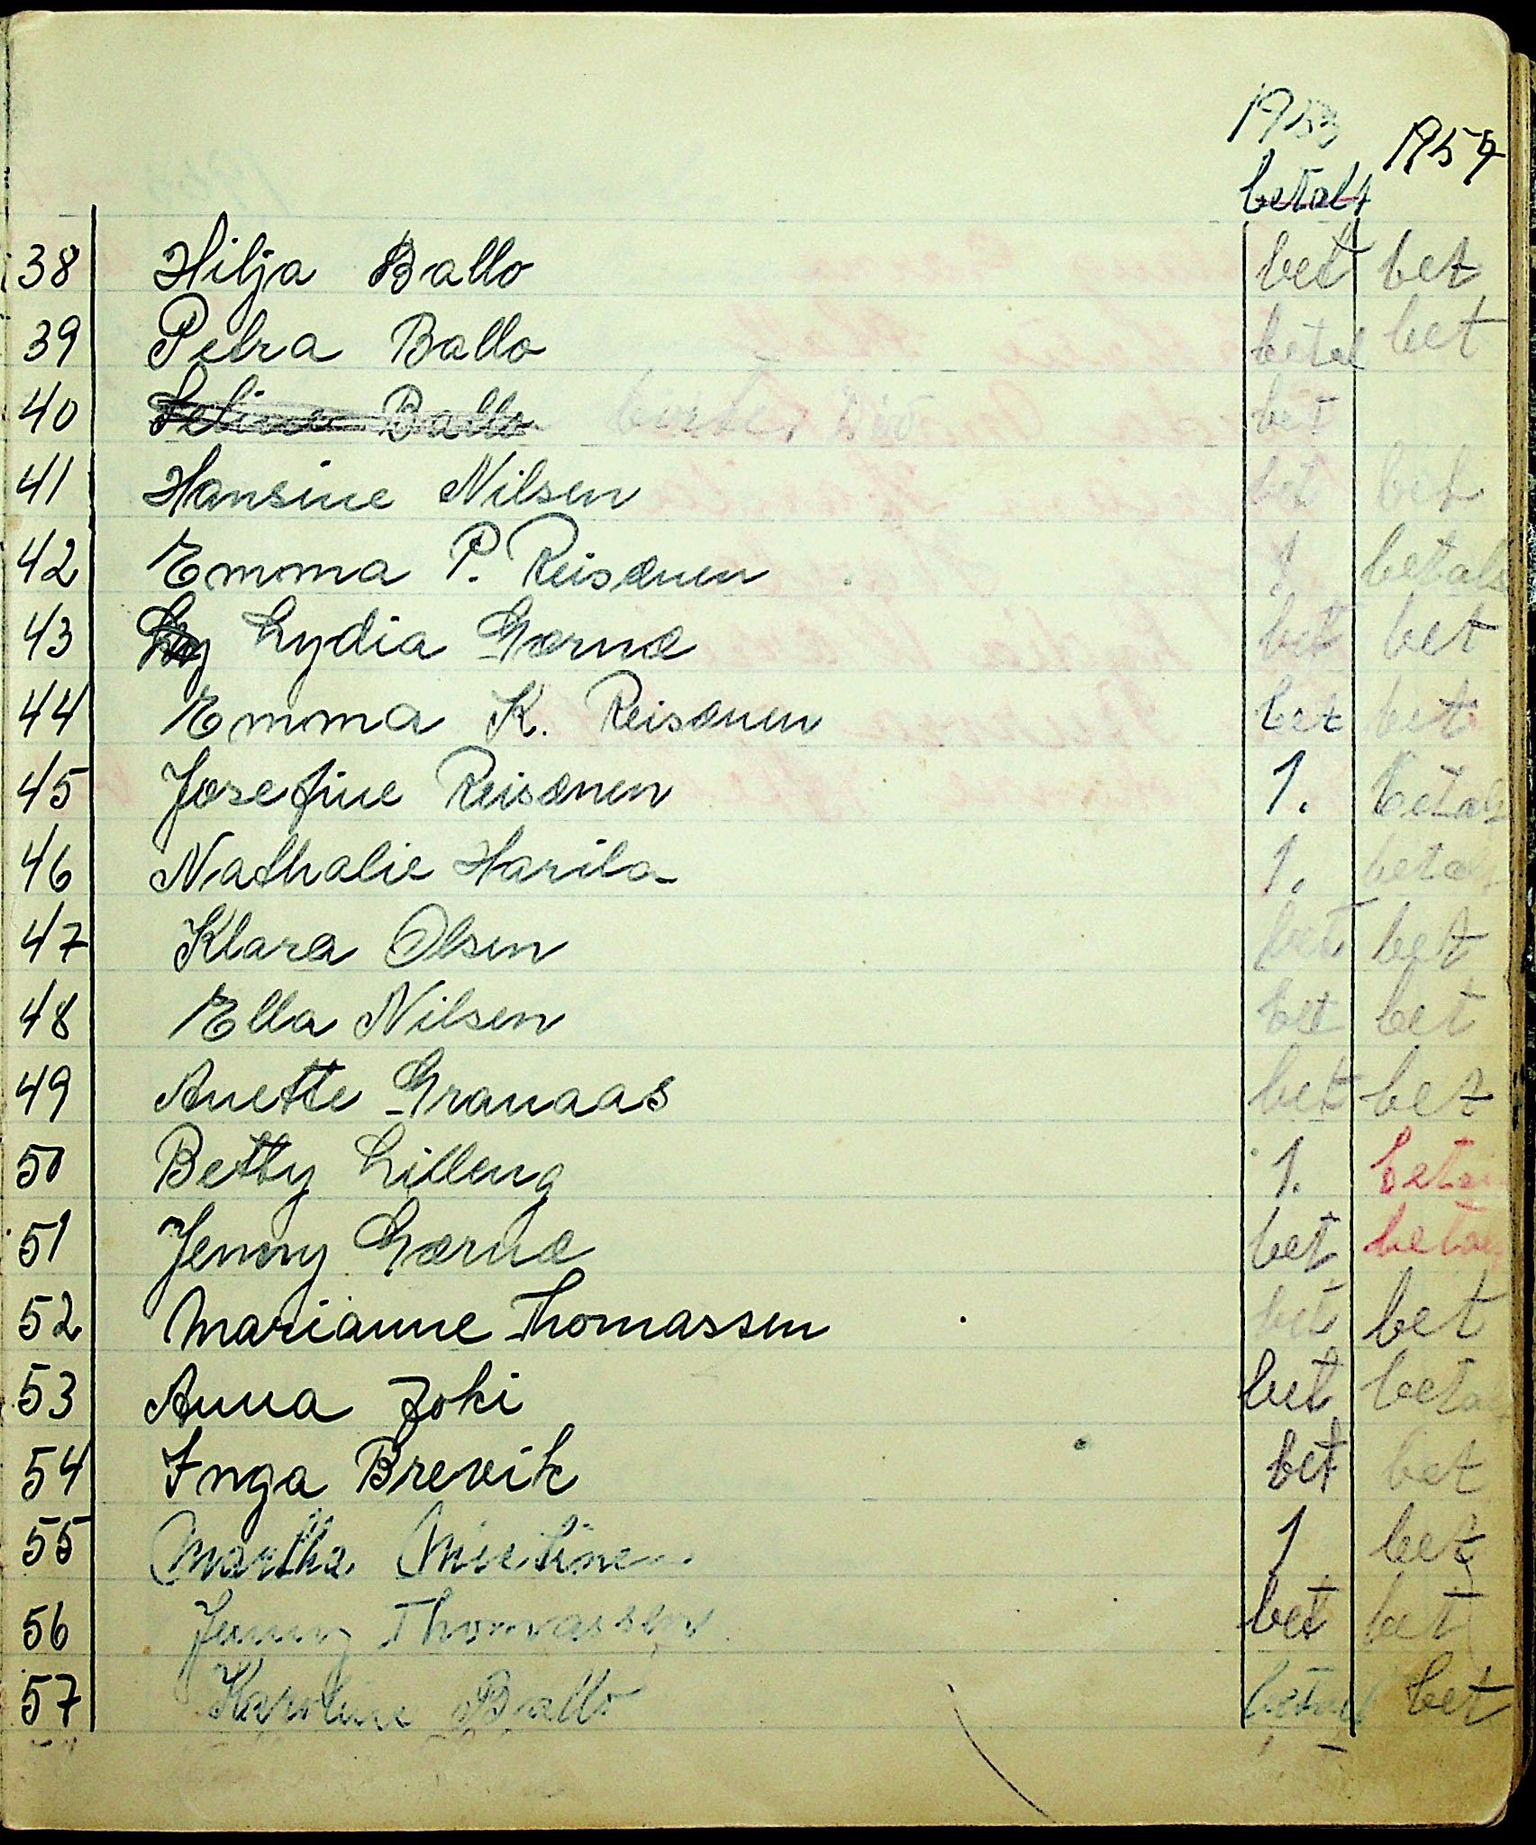 1953 1954
betalt
38 Hilja Ballo bet bet
39 Petra Ballo betal bet
40 Selina Ballo bortr. Död bet
41 Hansine Nilsen bet bet
42 Emma P. Reisænen 1 betalt
43 Lydia Gærnæ bet bet
44 Emma K. Reisænen bet bet
45 Josefine Reisænen 1. betalt
46 Nathalie Harila 1. betalt
47 Klara Olsen bet bet
48 Ella Nilsen bet bet
49 Anette Granaas bet bet
50 Betty Lilleng 1. betal
51 Jenny Gærnæ bet betal
52 Marianne Thomassen bet bet
53 Anna Joki bet betalt
54 Inga Brevik bet bet
55 Martha 1 bet
56 Jenny Thomassen bet bet
57 Karoline Ballo betalt bet